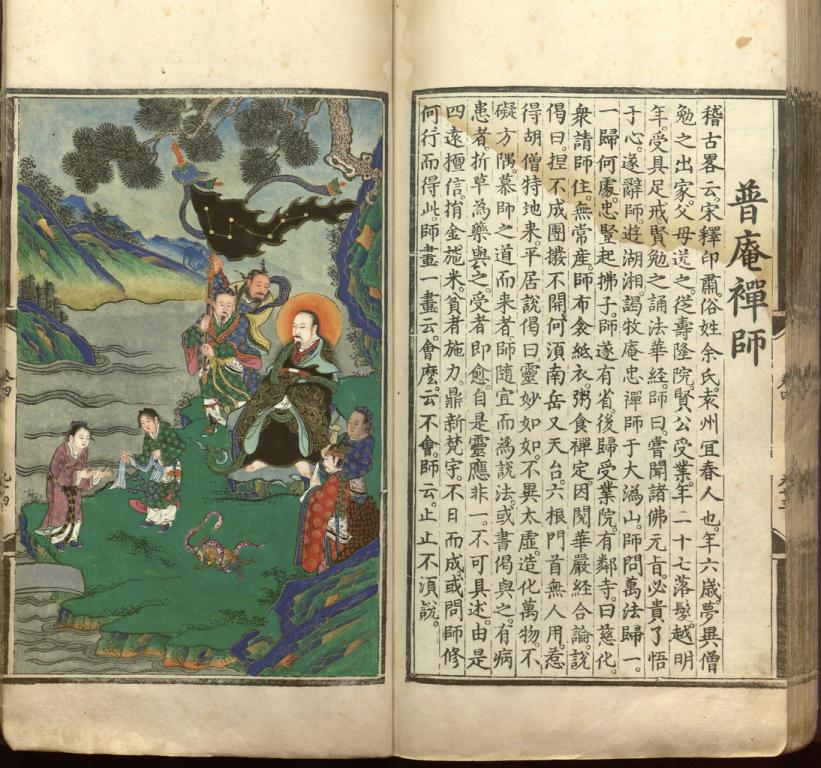 普庵禪師
稽古畧云。宋釋印肅。俗姓余氏。袁州宜春人也。年六歲。夢異僧
勉之出家。父母送之。從壽隆院。賢公受業。年二十七落髮。越明
年。受具足戒。賢勉之誦法華經。師曰。嘗聞諸佛元旨。必貴了悟
于心。遂辭師遊湖湘。謁牧庵忠禪師于大溈山。師問萬法歸一。
一歸何處。忠竪起拂子。師遂有省。後歸受業院。有鄰寺曰慈化。
衆請師住。無常産。師布衾紙衣。粥食禪定。因閱華嚴經合論。說
偈曰。捏不成團撥不開。何須南岳又天台。六根門首無人用。惹
得胡僧特地来。平居說偈曰。靈妙如如。不異太虛。造化萬物。不
礙方隅。慕師之道而来者。師隨宜而為說法。或書偈與之。有病
患者。折草為藥與之。受者即愈。自是靈應非一。不可具述。由是
四遠檀信。捐金施米。貧者施力。鼎新梵宇。不日而成。或問師修
何行而得此。師畫一畫云。會麽。云不會。師云。止止不須說。